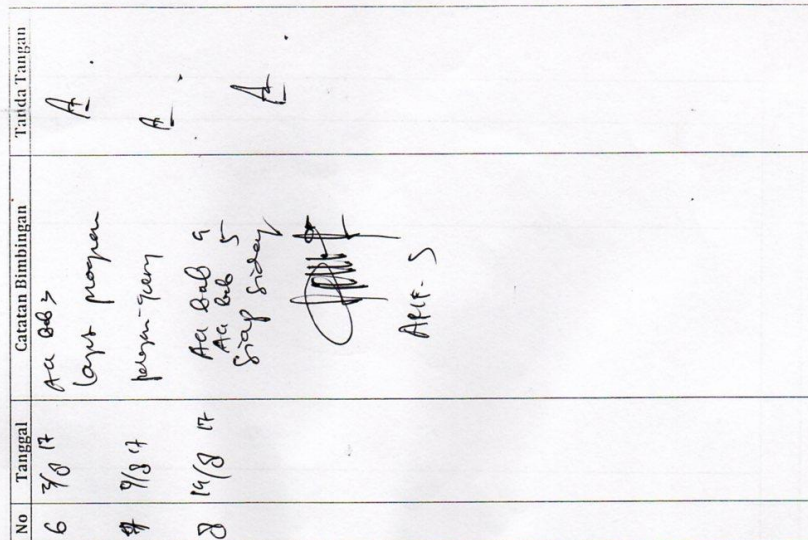 No Tanggal Catatan Bimbingan Tanda Tangan
6 3/8 17 Acc Bab 3
Lanjut program
7 9/8 17
8 14/8 17 Acc Bab 4
Acc Bab 5
Siap Sidang